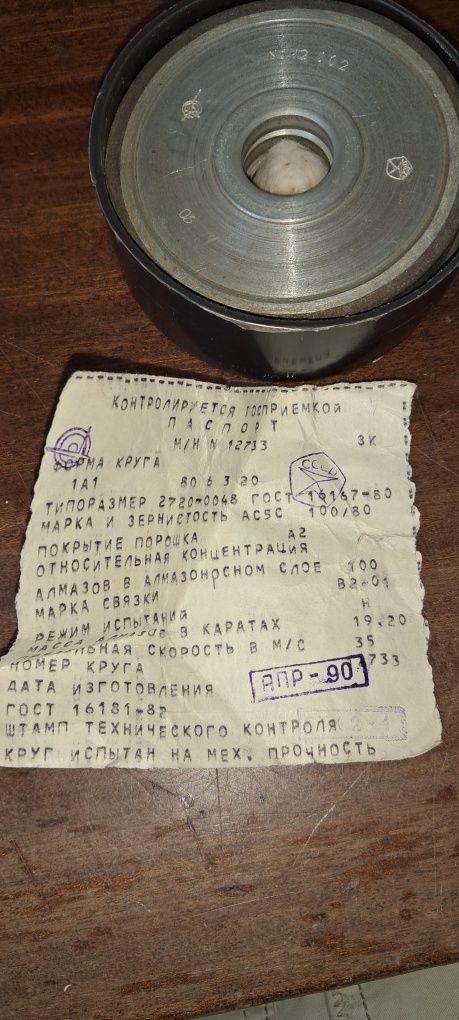 20
КОНТРОЛИРУЕТСЯ ГОСПРИЕМКОЙ
ПАСПОРТ
М/Н N 12733 3К
ФОРМА КРУГА
1А1 80 6 3 20
СССР
ТИПОРАЗМЕР 2720-0048 ГОСТ 16167-80
МАРКА И ЗЕРНИСТОСТЬ АС5С 100/80
ПОКРЫТИЕ ПОРОШКА А2
ОТНОСИТЕЛЬНАЯ КОНЦЕНТРАЦИЯ
АЛМАЗОВ В АЛМАЗОНОСНОМ СЛОЕ 100
МАРКА СВЯЗКИ В2-01
РЕЖИМ ИСПЫТАНИЙ Н
МАССА АЛМАЗОВ В КАРАТАХ 19.20
СКОРОСТЬ В М/С 35
НОМЕР КРУГА 733
ДАТА ИЗГОТОВЛЕНИЯ АПР-90
ГОСТ 16181-82
ШТАМП ТЕХНИЧЕСКОГО КОНТРОЛЯ
КРУГ ИСПЫТАН НА МЕХ. ПРОЧНОСТЬ